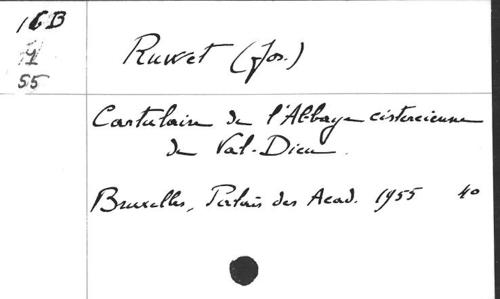 16B
1
55
Ruwet (Jos.)
Cartulaire de l'Abbaye cistercienne
du Val-Dieu.
Bruxelles, Palais des Acad. 1955 4o